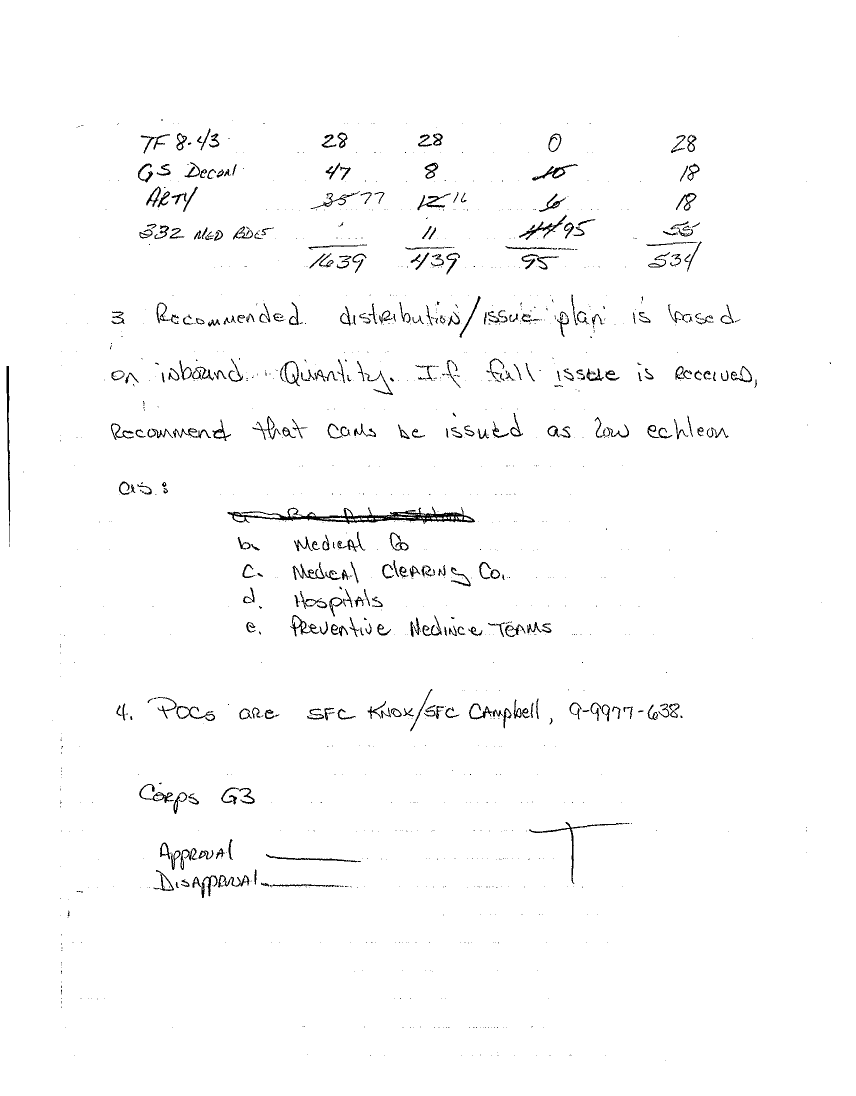 TF 8-43 28 28 0 28
GS Decon 47 8 10 18
ARTY 35 77 12 16 6 18
332 MED BDES 11 44 95 55
1639 439 95 534
3 Recommended distribution/issue plan is based
on inbound Quantity. If full issue is received,
Recommend that cams be issued as low echleon
as:
b. Medical Co
c. Medical Clearing Co.
d. Hospitals
e. Preventive Medince Teams
4. POCs are SFC Knox/SFC Campbell, 9-9977-638.
Corps G3
Approval
Disapproval